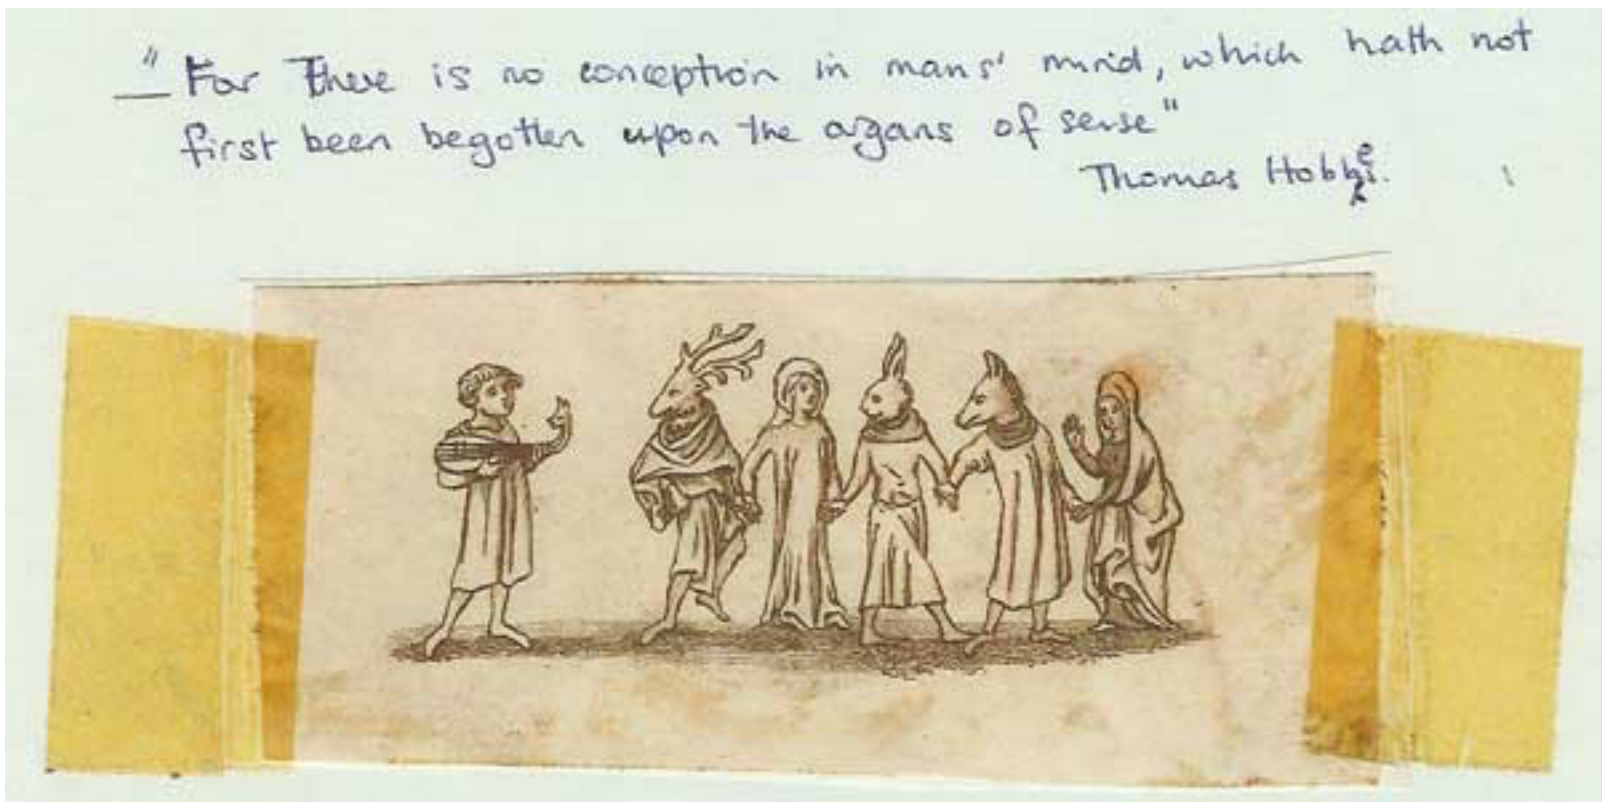 "For There is no conception in mans' mind, which hath not
first been begotten upon the organs of sense"
Thomas Hobbes.